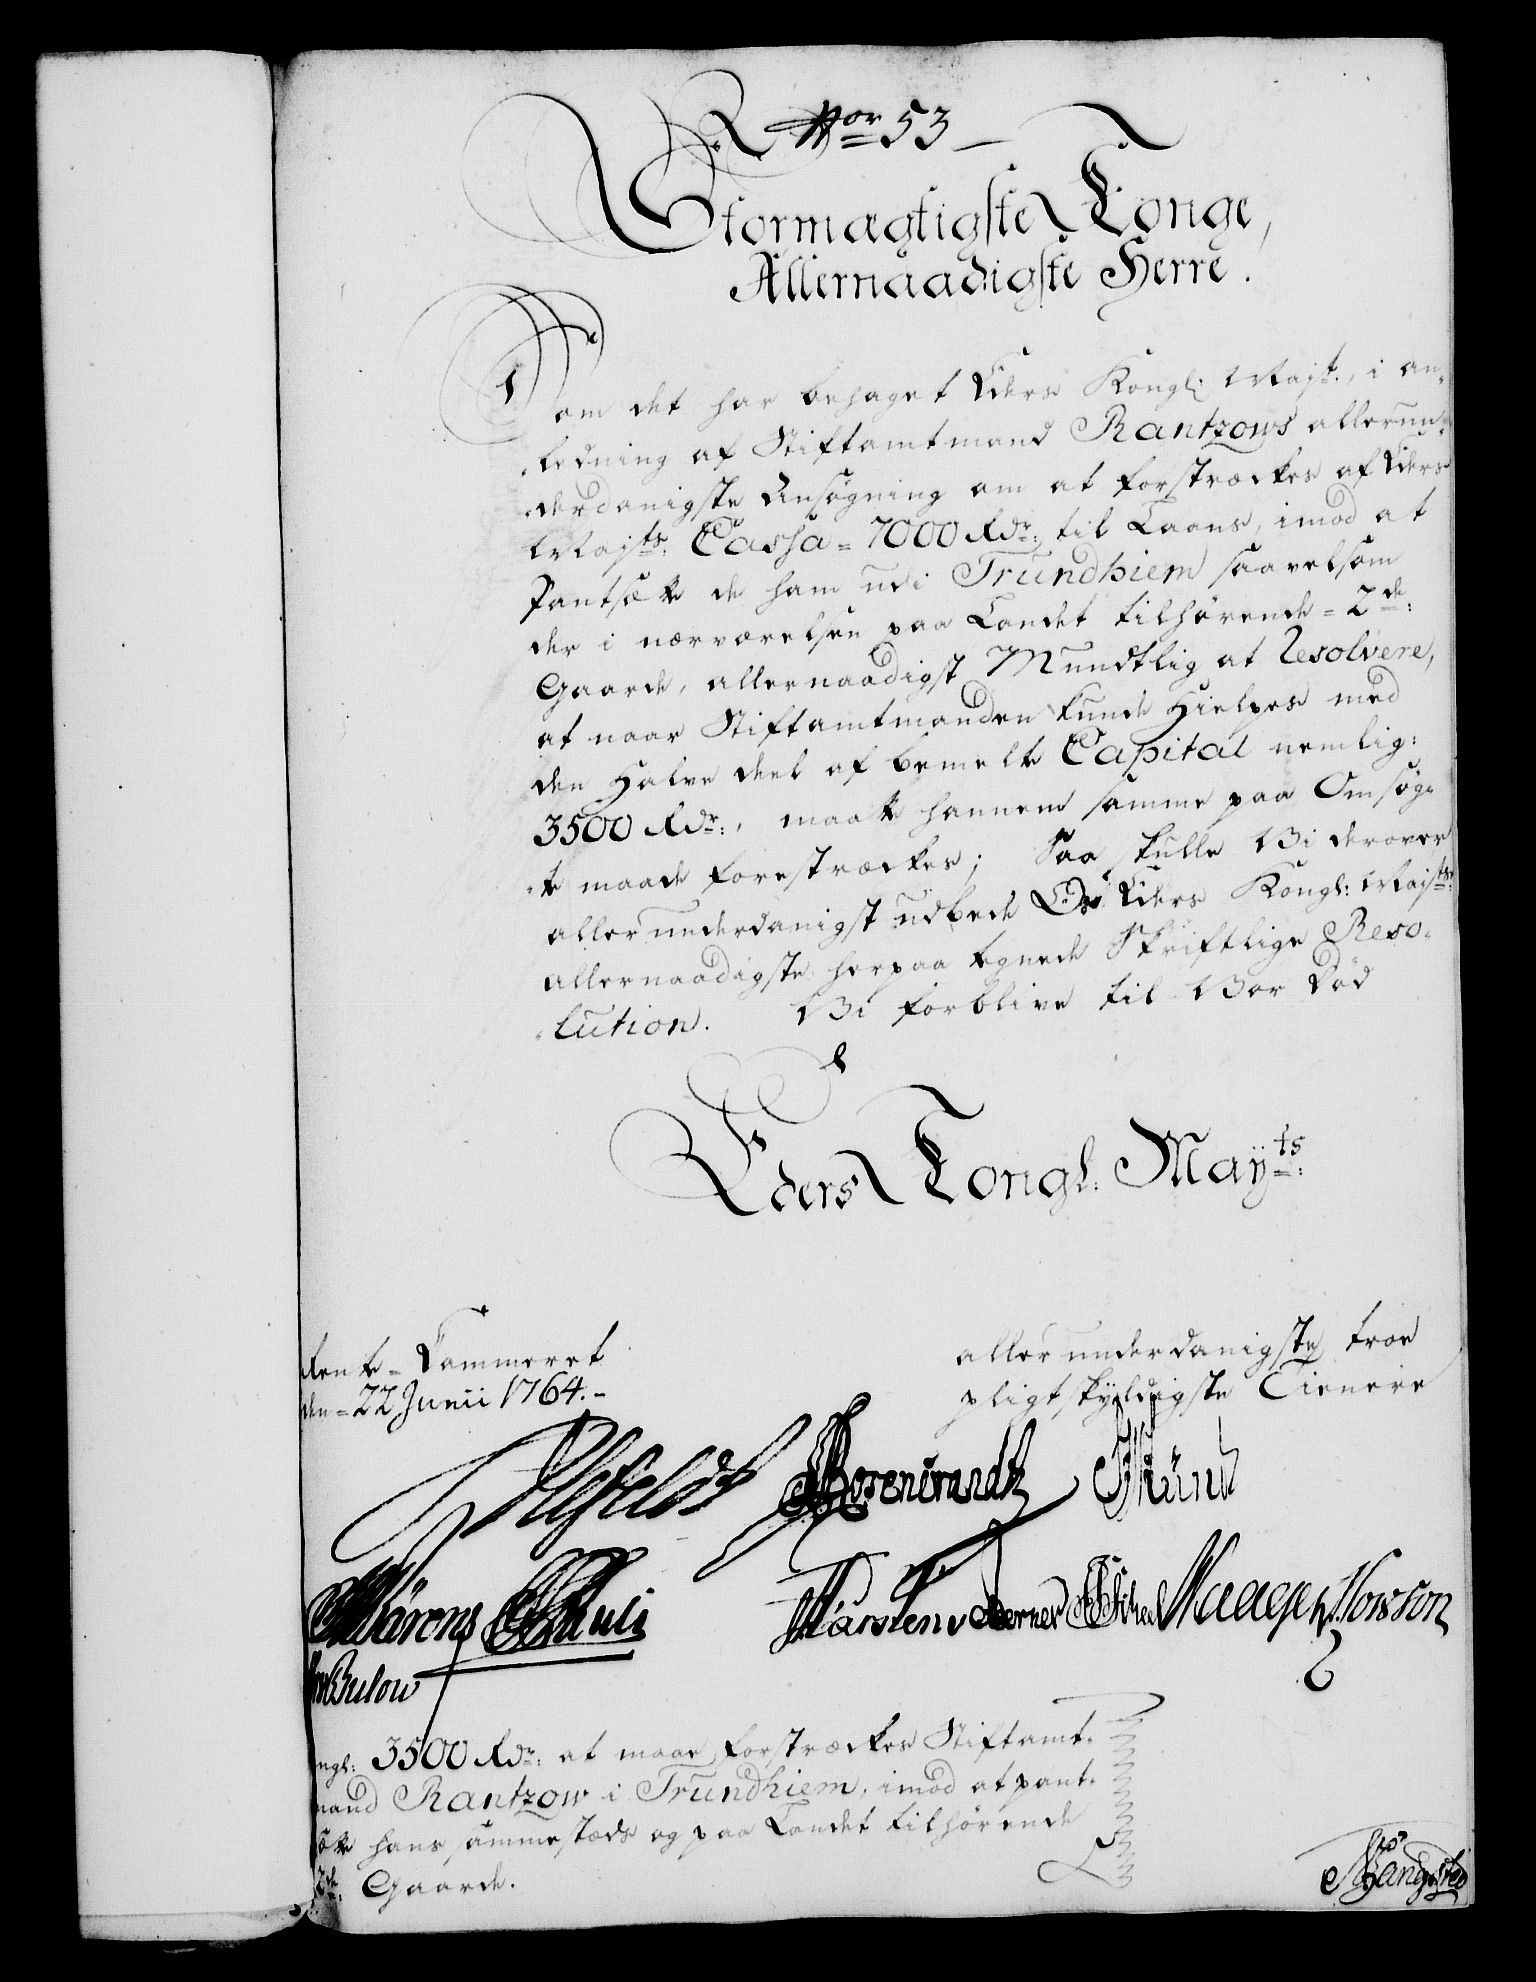 Nor 53
Stormægtigste Konge,
Allernaadigste Herre.
Som det har behaget Eders Kongl: Majt:, i an-
ledning af Stiftamtmand Rantzows allerun-
derdanigste Ansøgning om at forstrækkes af Eders
Majts: Cassa = 7000 Rdr: til Laans, imod at
Pantsætte de ham udi Trundhiem saavelsom
der i nærværelsen paa Landet tilhørende = 2de:
Gaarde, allernaadigst Mundtlig at Resolvere,
at naar Stiftamtmanden kunde Hielpes med
den Halve deel af bemelte Capital nemlig:
3500 Rdr:, maatte hannem samme paa Omsøg-
te maade forestrækkes; Saa skulle Vi derover
allerunderdanigst udbede Os Eders Kongl: Majts:
allernaadigste herpaa tegnede Skriftlige Reso-
lution. Vi forblive til Vor Død
Eders Kongl: Mayts:
Rente-Cammeret
den = 22 Junii 1764.-
allerunderdanigste troe
pligtskyldigste Tienere
Ahlefeldt
Bulow
ngl: 3500 Rdr: at maae forstrækkes Stiftamt-
mand Rantzow i Trundhiem, imod at pant-
sætte hans sammestæds og paa Landet tilhørende
2de: Gaarde.